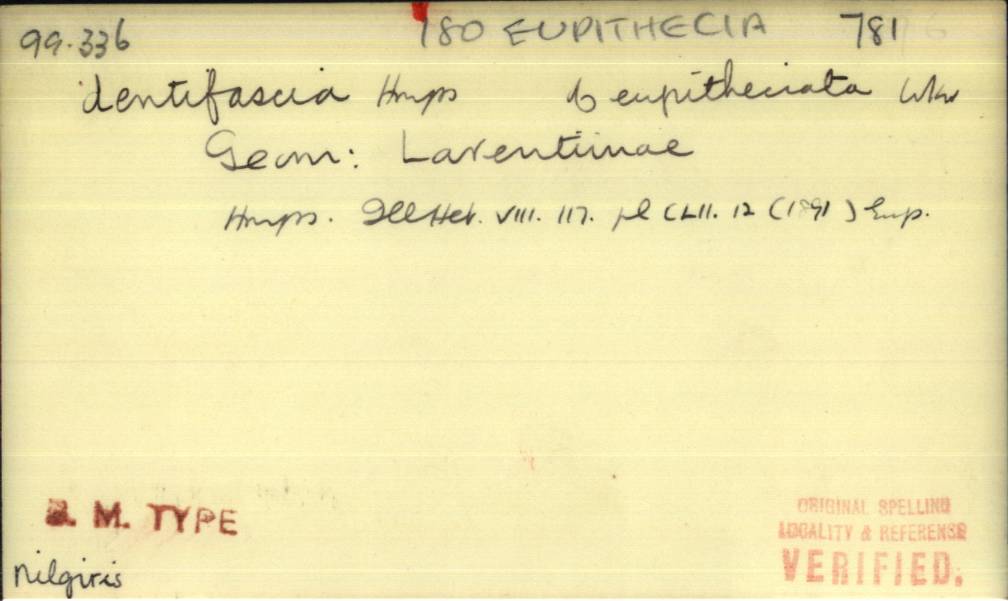 99.336 180 EUPITHECIA 781
dentifascia Hmps b eupitheciata Wkr
Geom: Larentiinae
Hmps. Ill Het. VIII. 117. pl CLII. 12 (1891) Eup.
B. M. TYPE
Nilgiris
ORIGINAL SPELLING
LOCALITY & REFERENSE
VERIFIED.